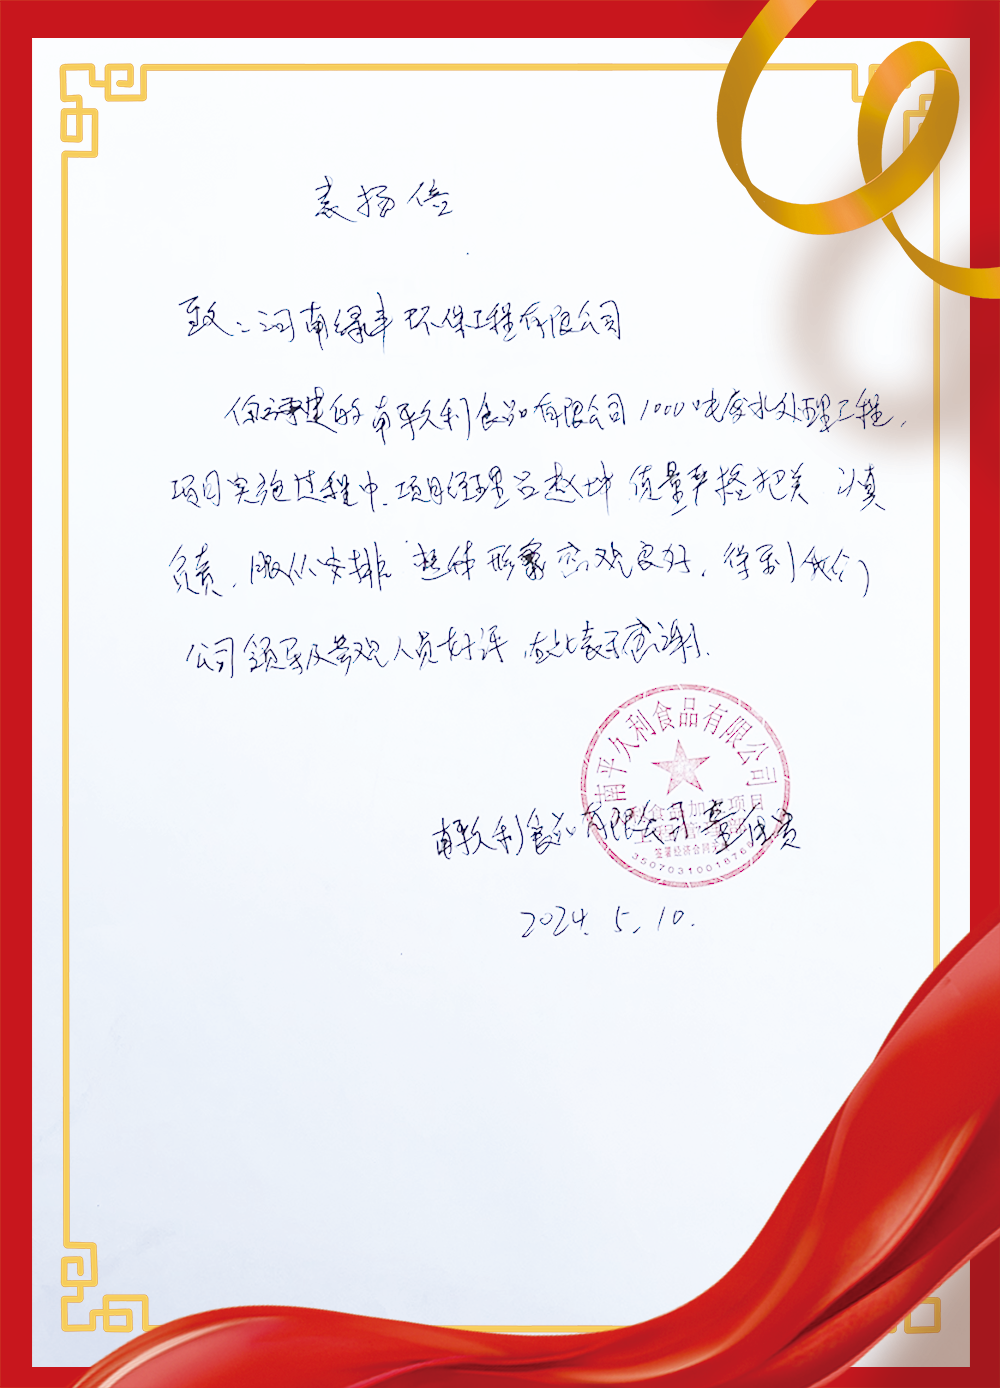 表扬信
致：河南绿丰环保工程有限公司
你承建的南平久利食品有限公司1000吨废水处理工程，
项目实施过程中，项目经理吕赵坤 质量严格把关 认真
负责，服从安排 整体形象 观良好，得到我们
公司领导及参观人员好评，在此表示感谢。
南平久利食品有限公司
食品加工项目
签署经济合同无效
3507031001876
南平久利食品有限公司
2024.5.10.